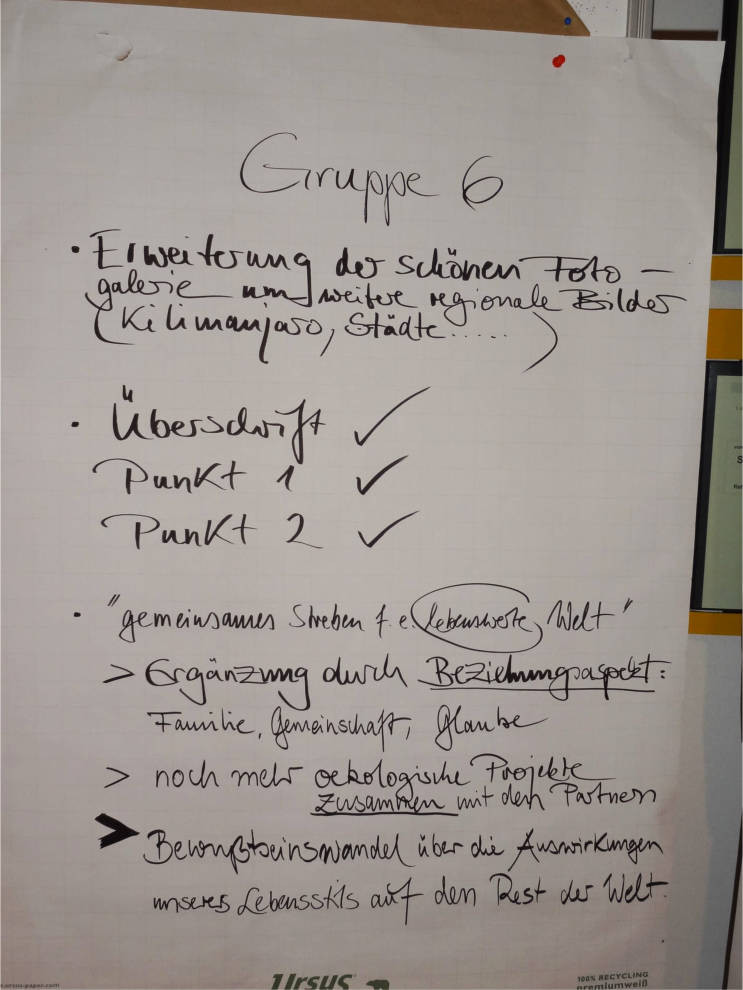 Gruppe 6
• Erweiterung der schönen Foto –
galerie um weitere regionale Bilder
(Kilimanjaro, Städte.....)
• Überschrift ✓
Punkt 1 ✓
Punkt 2 ✓
• "gemeinsames Streben f. e. lebenswerte Welt"
> Ergänzung durch Beziehungsaspekt:
Familie, Gemeinschaft, Glaube
> noch mehr oekologische Projekte
zusammen mit den Partnern
> Bewußtseinswandel über die Auswirkungen
unseres Lebensstils auf den Rest der Welt.
Ursus
100% RECYCLING
premiumweiß